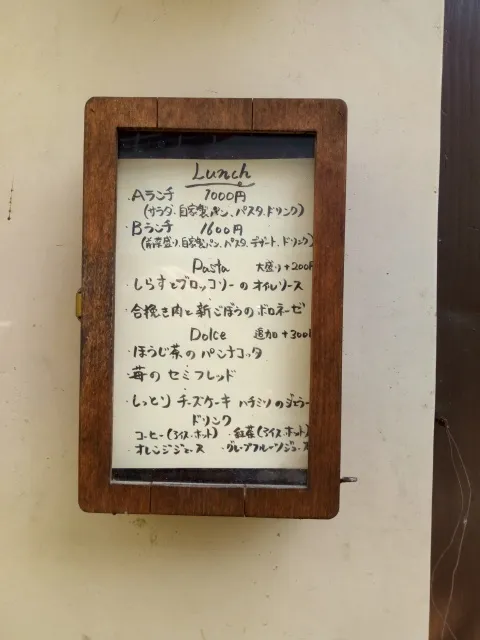 Lunch
・Aランチ 1000円
(サラダ、自家製パン、パスタ、ドリンク)
・Bランチ 1600円
(前菜盛り、自家製パン、パスタ、デザート、ドリンク)
Pasta 大盛り+200円
・しらすとブロッコリーのオイルソース
・合挽き肉と新ごぼうのボロネーゼ
Dolce 追加+300円
・ほうじ茶のパンナコッタ
・苺のセミフレッド
・しっとりチーズケーキ ハチミツのジェラー
ドリンク
コーヒー(アイス・ホット) ・紅茶(アイス・ホット)
オレンジジュース ・グレープフルーツジュース